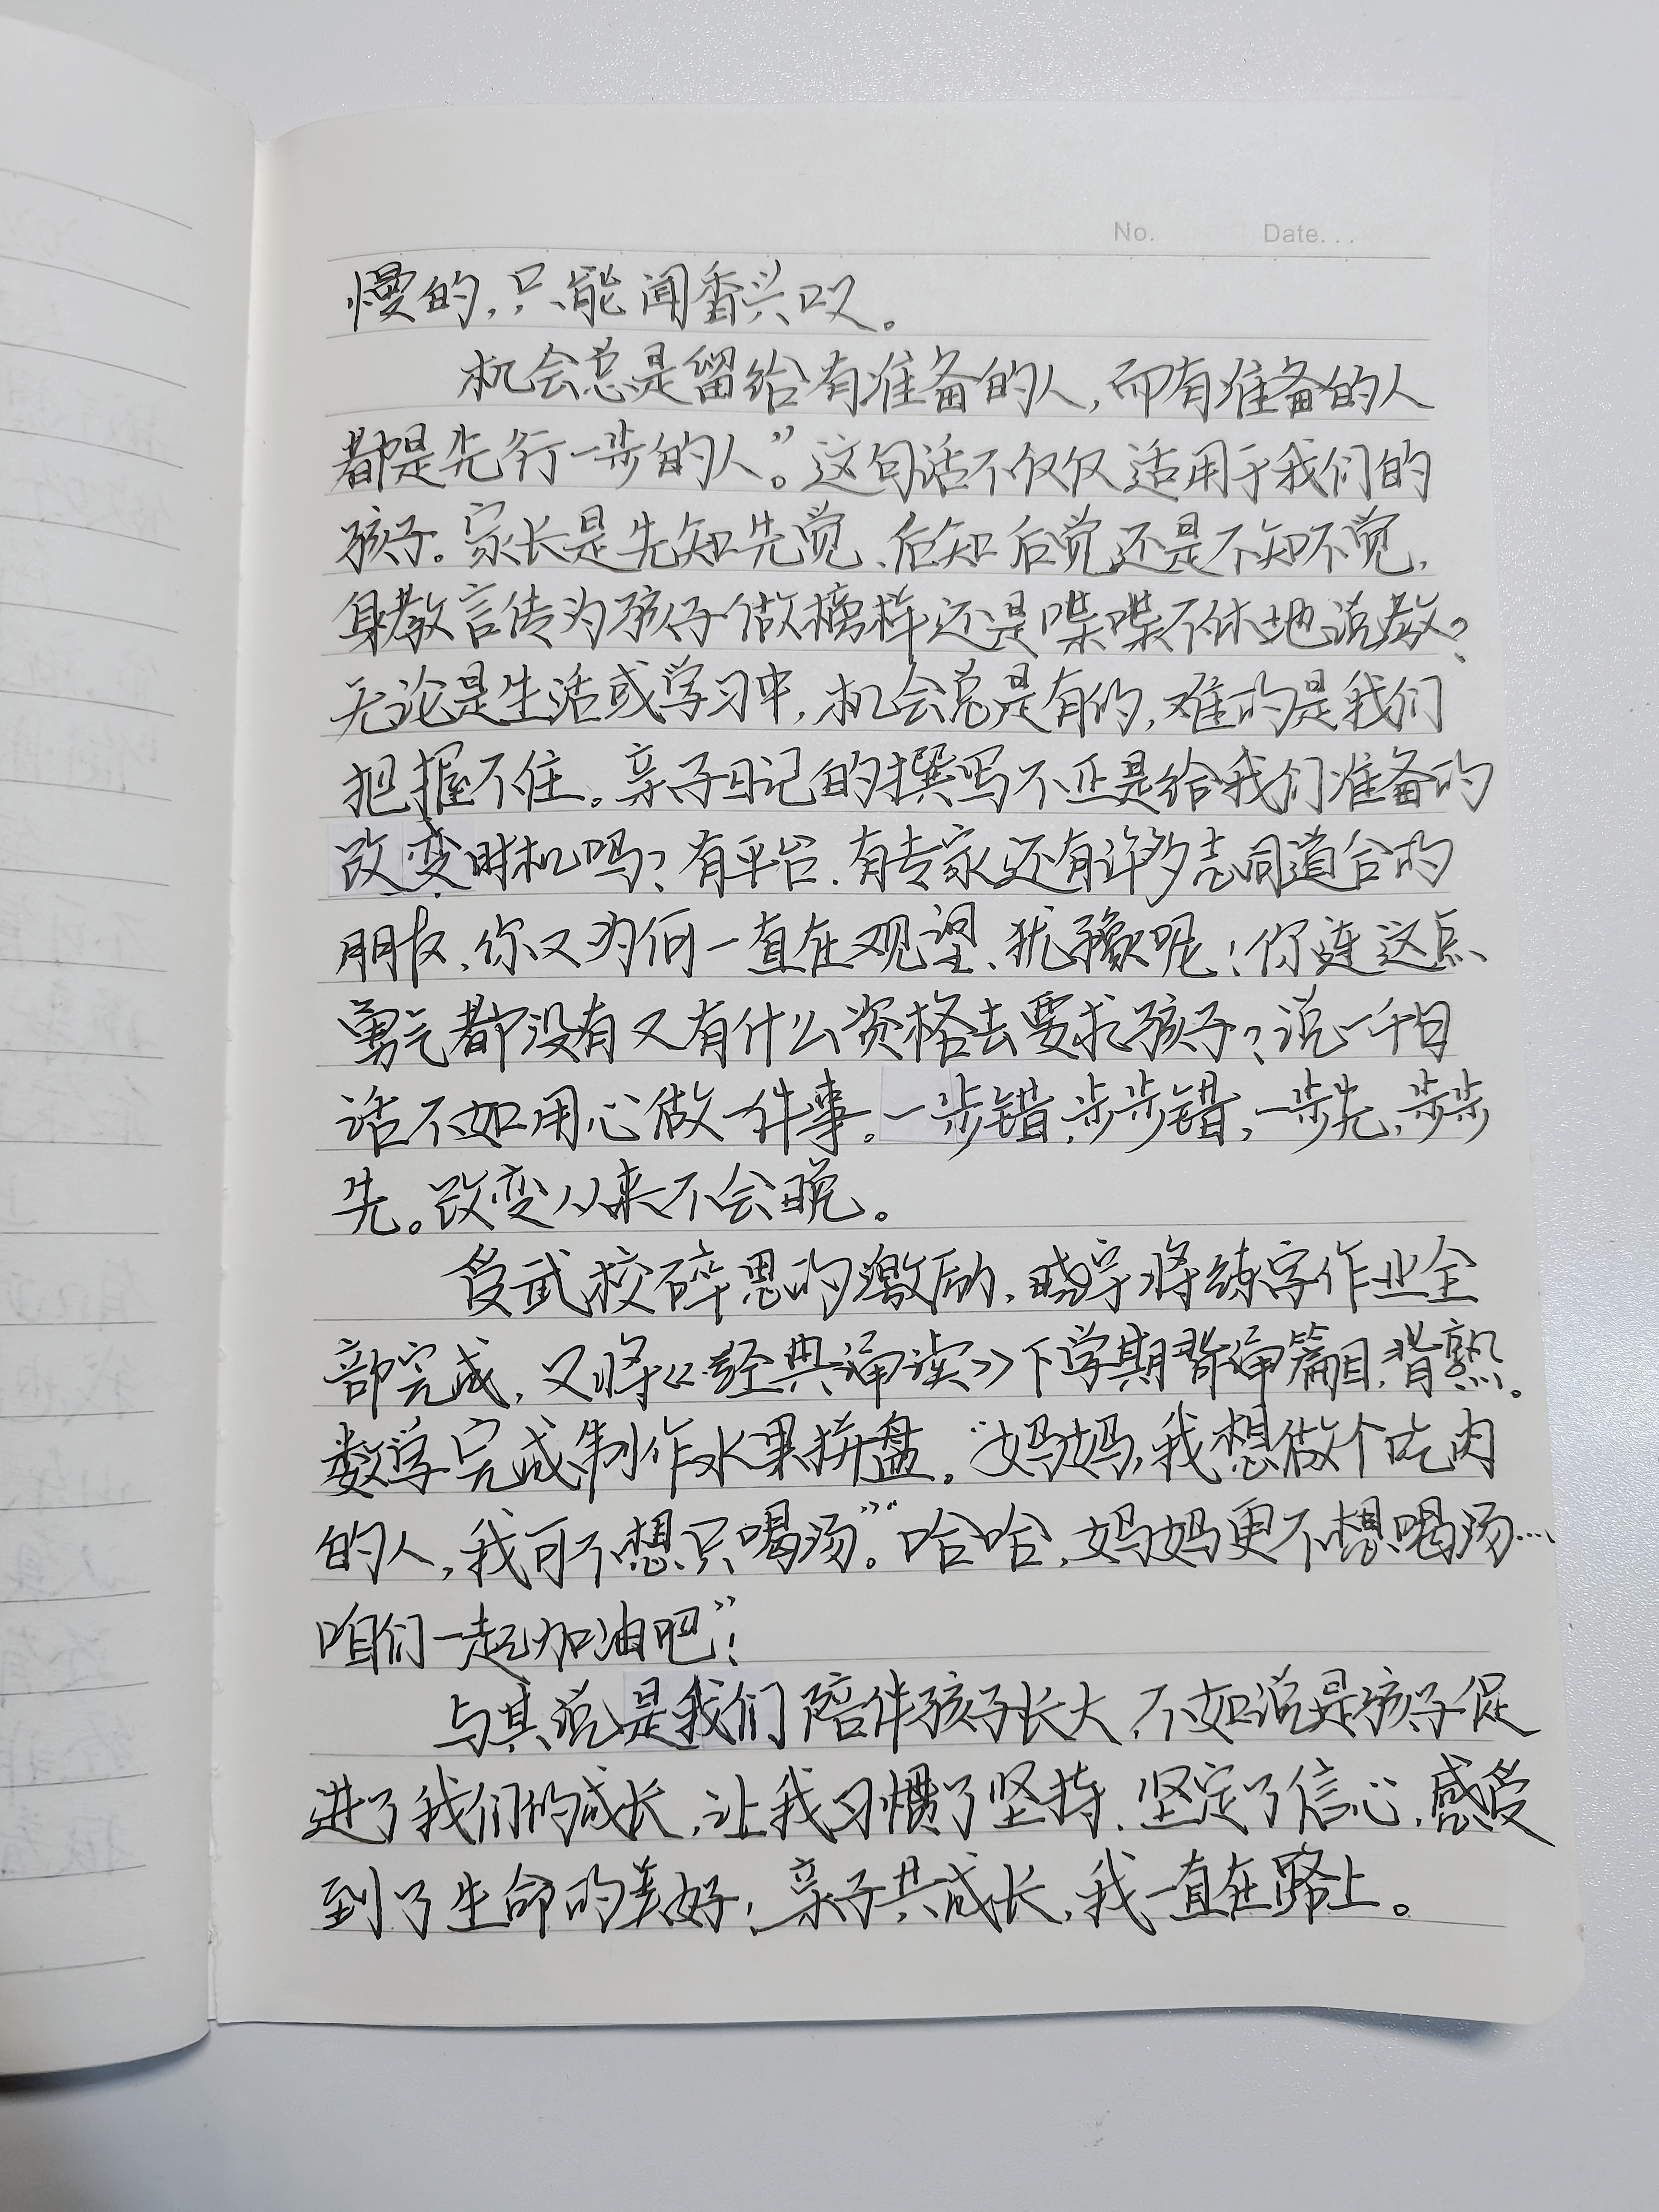 No. Date...
慢的,只能闻香兴叹。
机会总是留给有准备的人,而有准备的人
都是先行一步的人。”这句话不仅仅适用于我们的
孩子。家长是先知先觉、后知后觉还是不知不觉,
身教言传为孩子做榜样还是喋喋不休地说教?
无论是生活或学习中,机会总是有的,难的是我们
把握不住。亲子日记的撰写不正是给我们准备的
改变时机吗?有平台、有专家还有许多志同道合的
朋友,你又为何一直在观望、犹豫呢!你连这点
勇气都没有又有什么资格去要求孩子?说一千句
话不如用心做一件事。一步错,步步错,一步先,步步
先。改变从来不会晚。
受武校碎思的激励,晓宇将练字作业全
部完成,又将《经典诵读》下学期背诵篇目,背熟。
数学完成制作水果拼盘。“妈妈,我想做个吃肉
的人,我可不想只喝汤。”“哈哈,妈妈更不想喝汤…
咱们一起加油吧”!
与其说是我们陪伴孩子长大,不如说是孩子促
进了我们的成长,让我习惯了坚持、坚定了信心,感受
到了生命的美好,亲子共成长,我一直在路上。